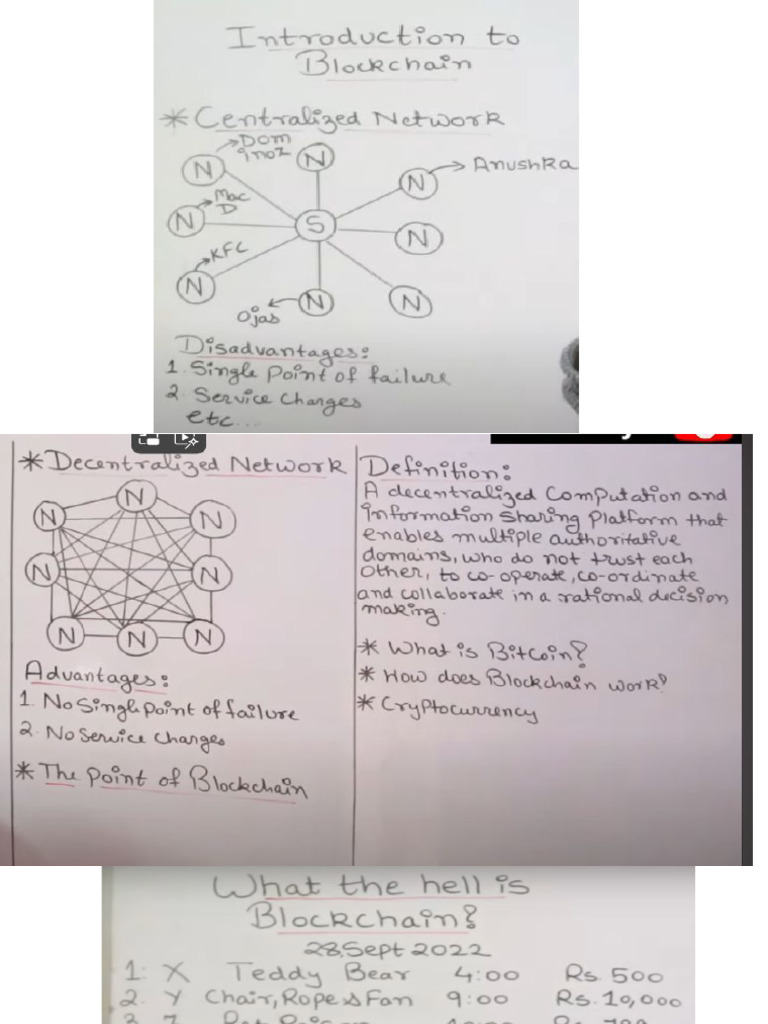 Introduction to
Blockchain
* Centralized Network
Dom
inoz
N
N
N
Anushka
Mac
D
N
S
N
KFC
N
N
N
Ojas
Disadvantages:
1. Single Point of failure
2. Service Charges
etc...
* Decentralized Network
N
N
N
N
N
N
N
N
Advantages:
1. No Single point of failure
2. No Service Charges
* The Point of Blockchain
Definition:
A decentralized Computation and
information sharing Platform that
enables multiple authoritative
domains, who do not trust each
other, to co-operate, co-ordinate
and collaborate in a rational decision
making.
* What is Bitcoin?
* How does Blockchain work?
* Cryptocurrency
What the hell is
Blockchain?
28, Sept 2022
1: X Teddy Bear 4:00 Rs. 500
2. Y Chair, Rope & Fan 9:00 Rs. 10,000